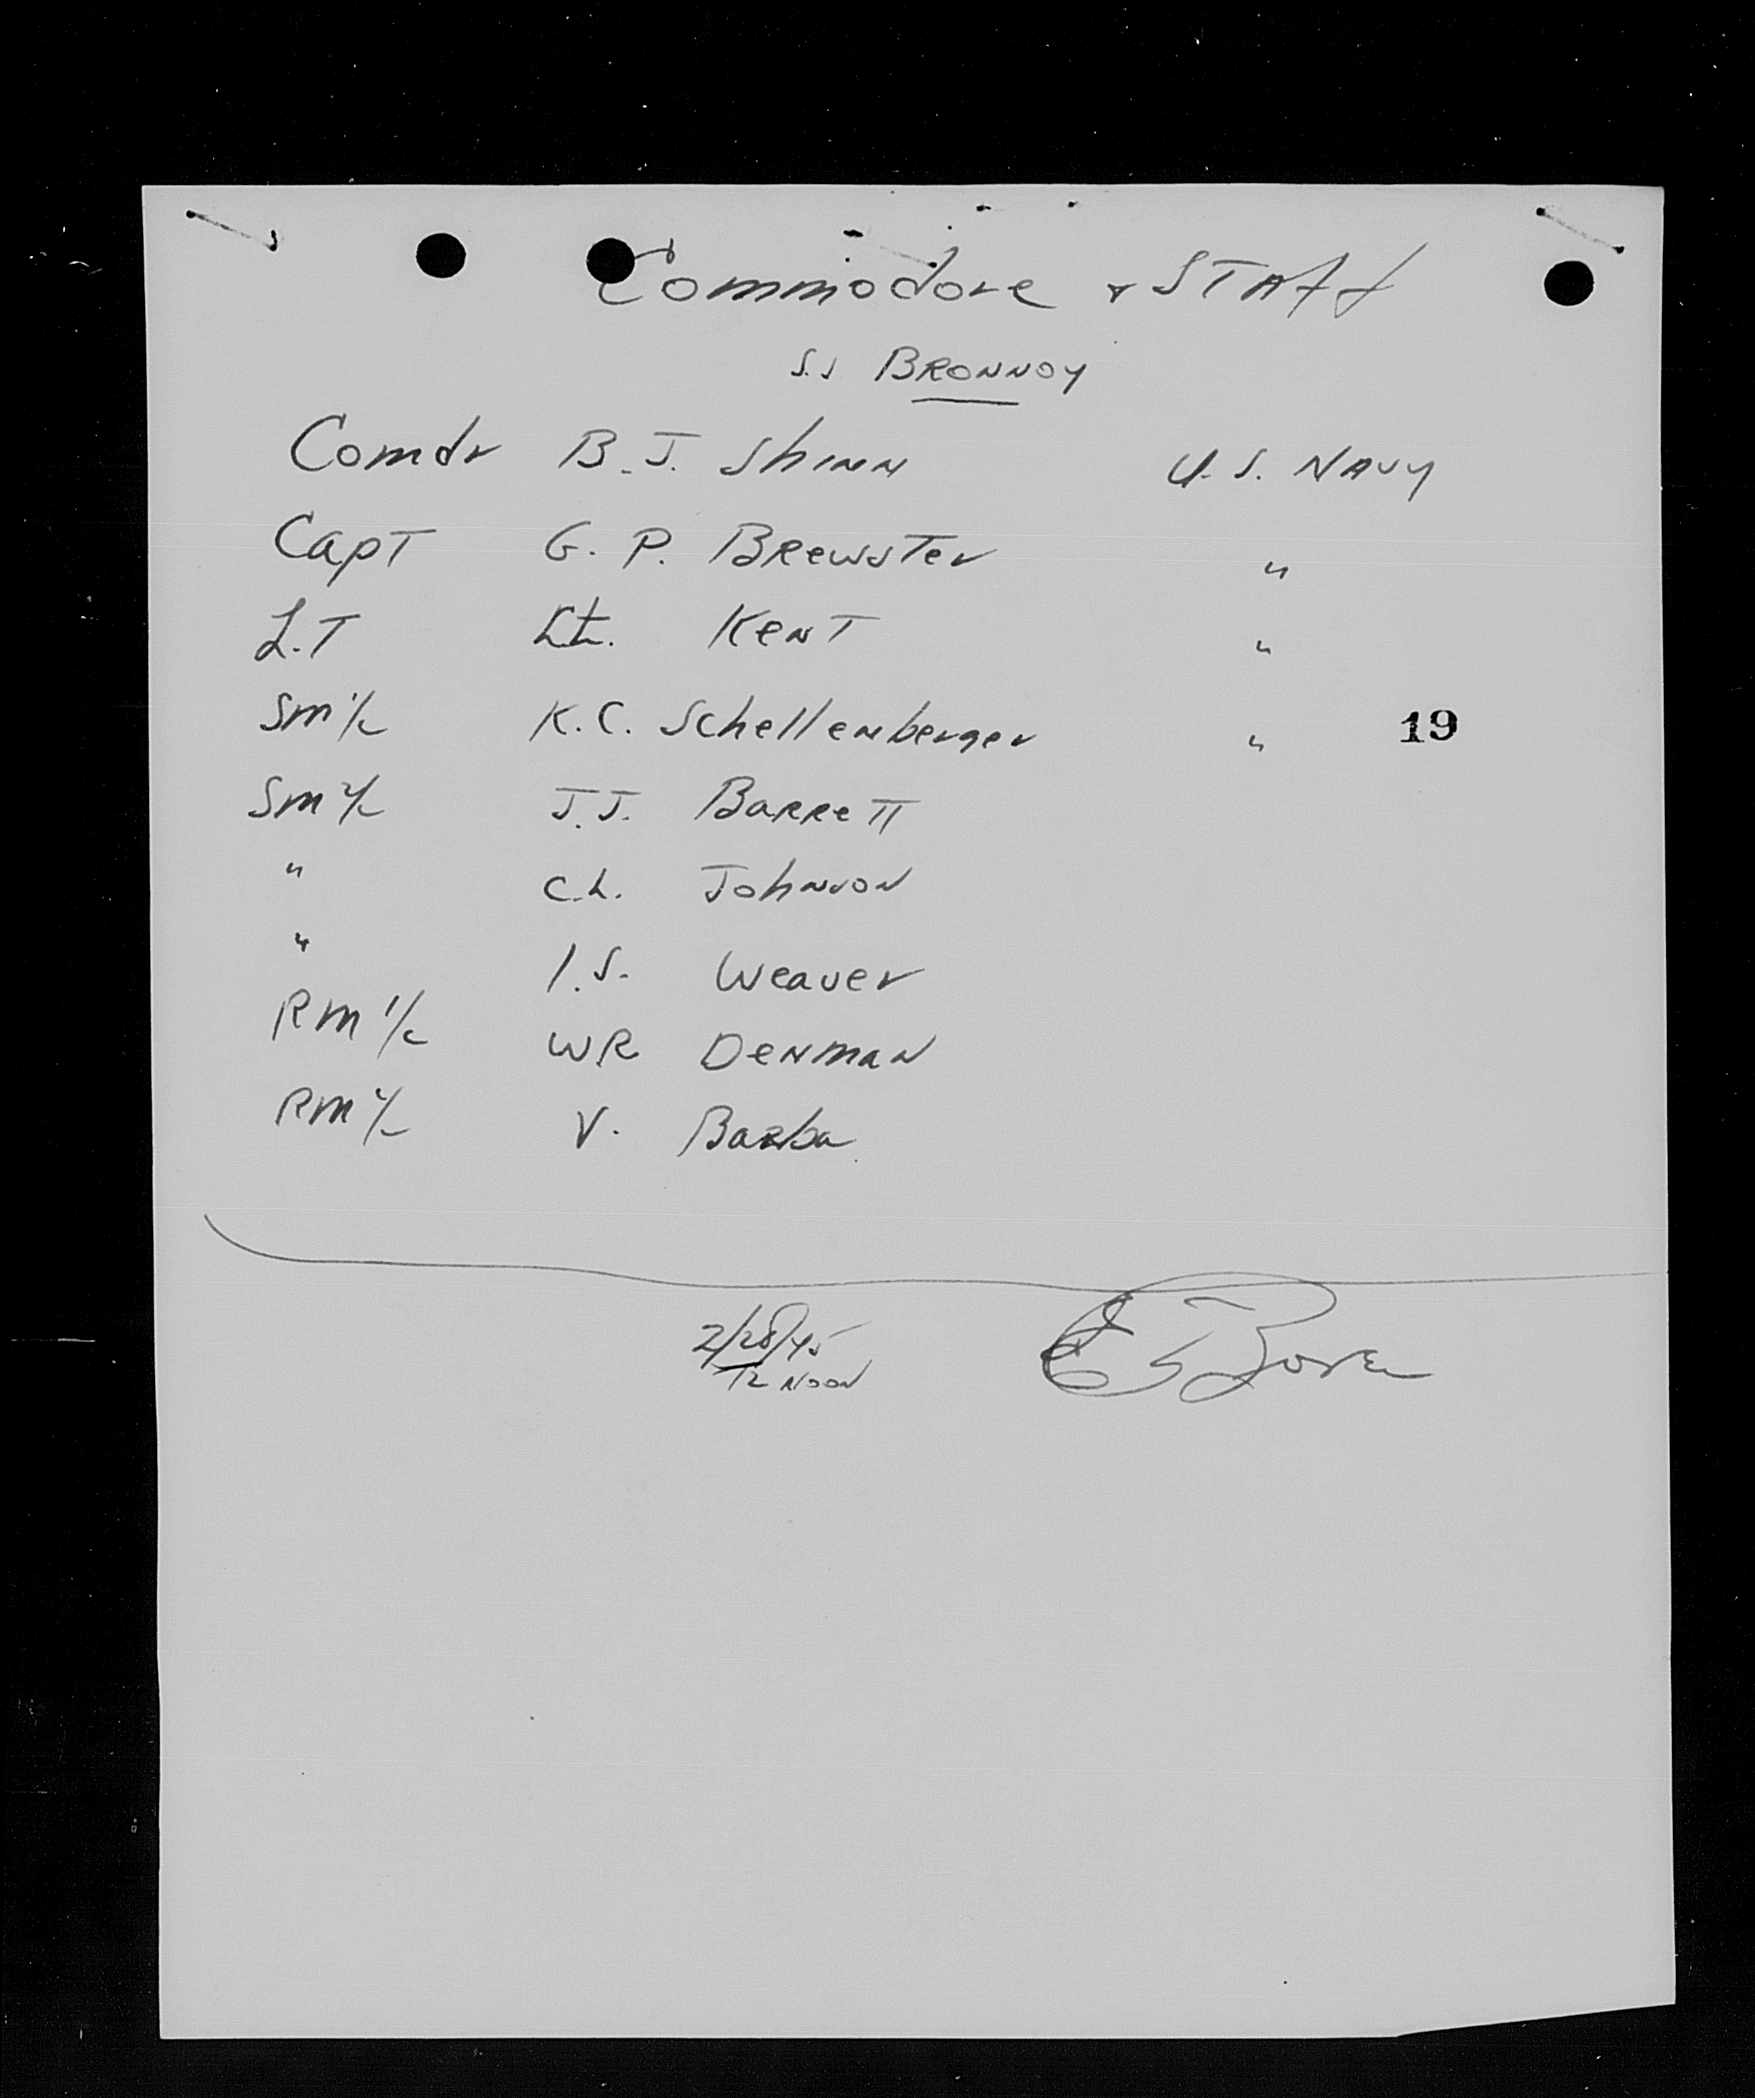 Commodore & Staff
S.S BRONNOY
Comdr B. J. Shinn U. S. NAVY
Capt G. P. Brewster "
L.T Lt. Kent "
Sm 1/c K. C. Schellenberger " 19
Sm 2/c J. J. Barrett
" C. L. Johnson
" I. S. Weaver
RM 1/c WR Denman
RM 2/c V. Barba
2/28/45
12 NOON